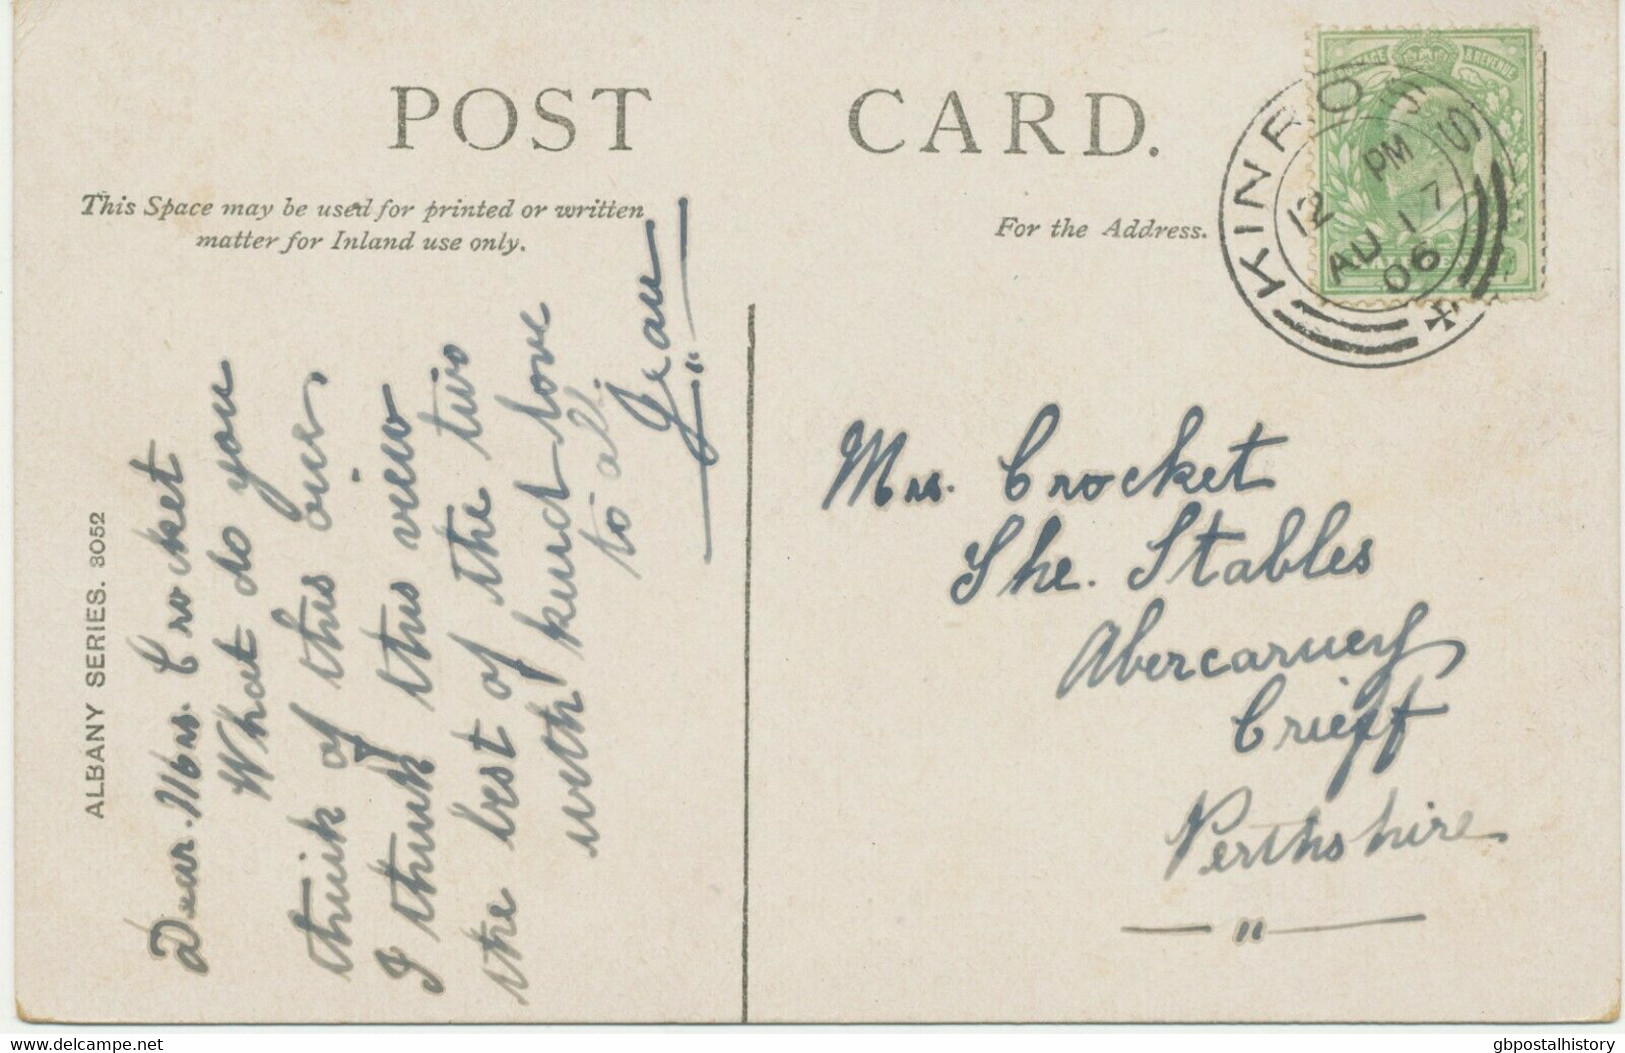 POST CARD.
This Space may be used for printed or written
matter for Inland use only.
For the Address.
POSTAGE & REVENUE
KINROSS
12 PM
AU 17
06
ALBANY SERIES. 3052
Dear Mrs. Crocket
What do you
think of this one.
I think this view
the best of the two
with kind love
to all.
Jean
Mrs. Crocket
The. Stables
Abercarney
Crieff
Perthshire
delcampe.net
gbpostalhistory